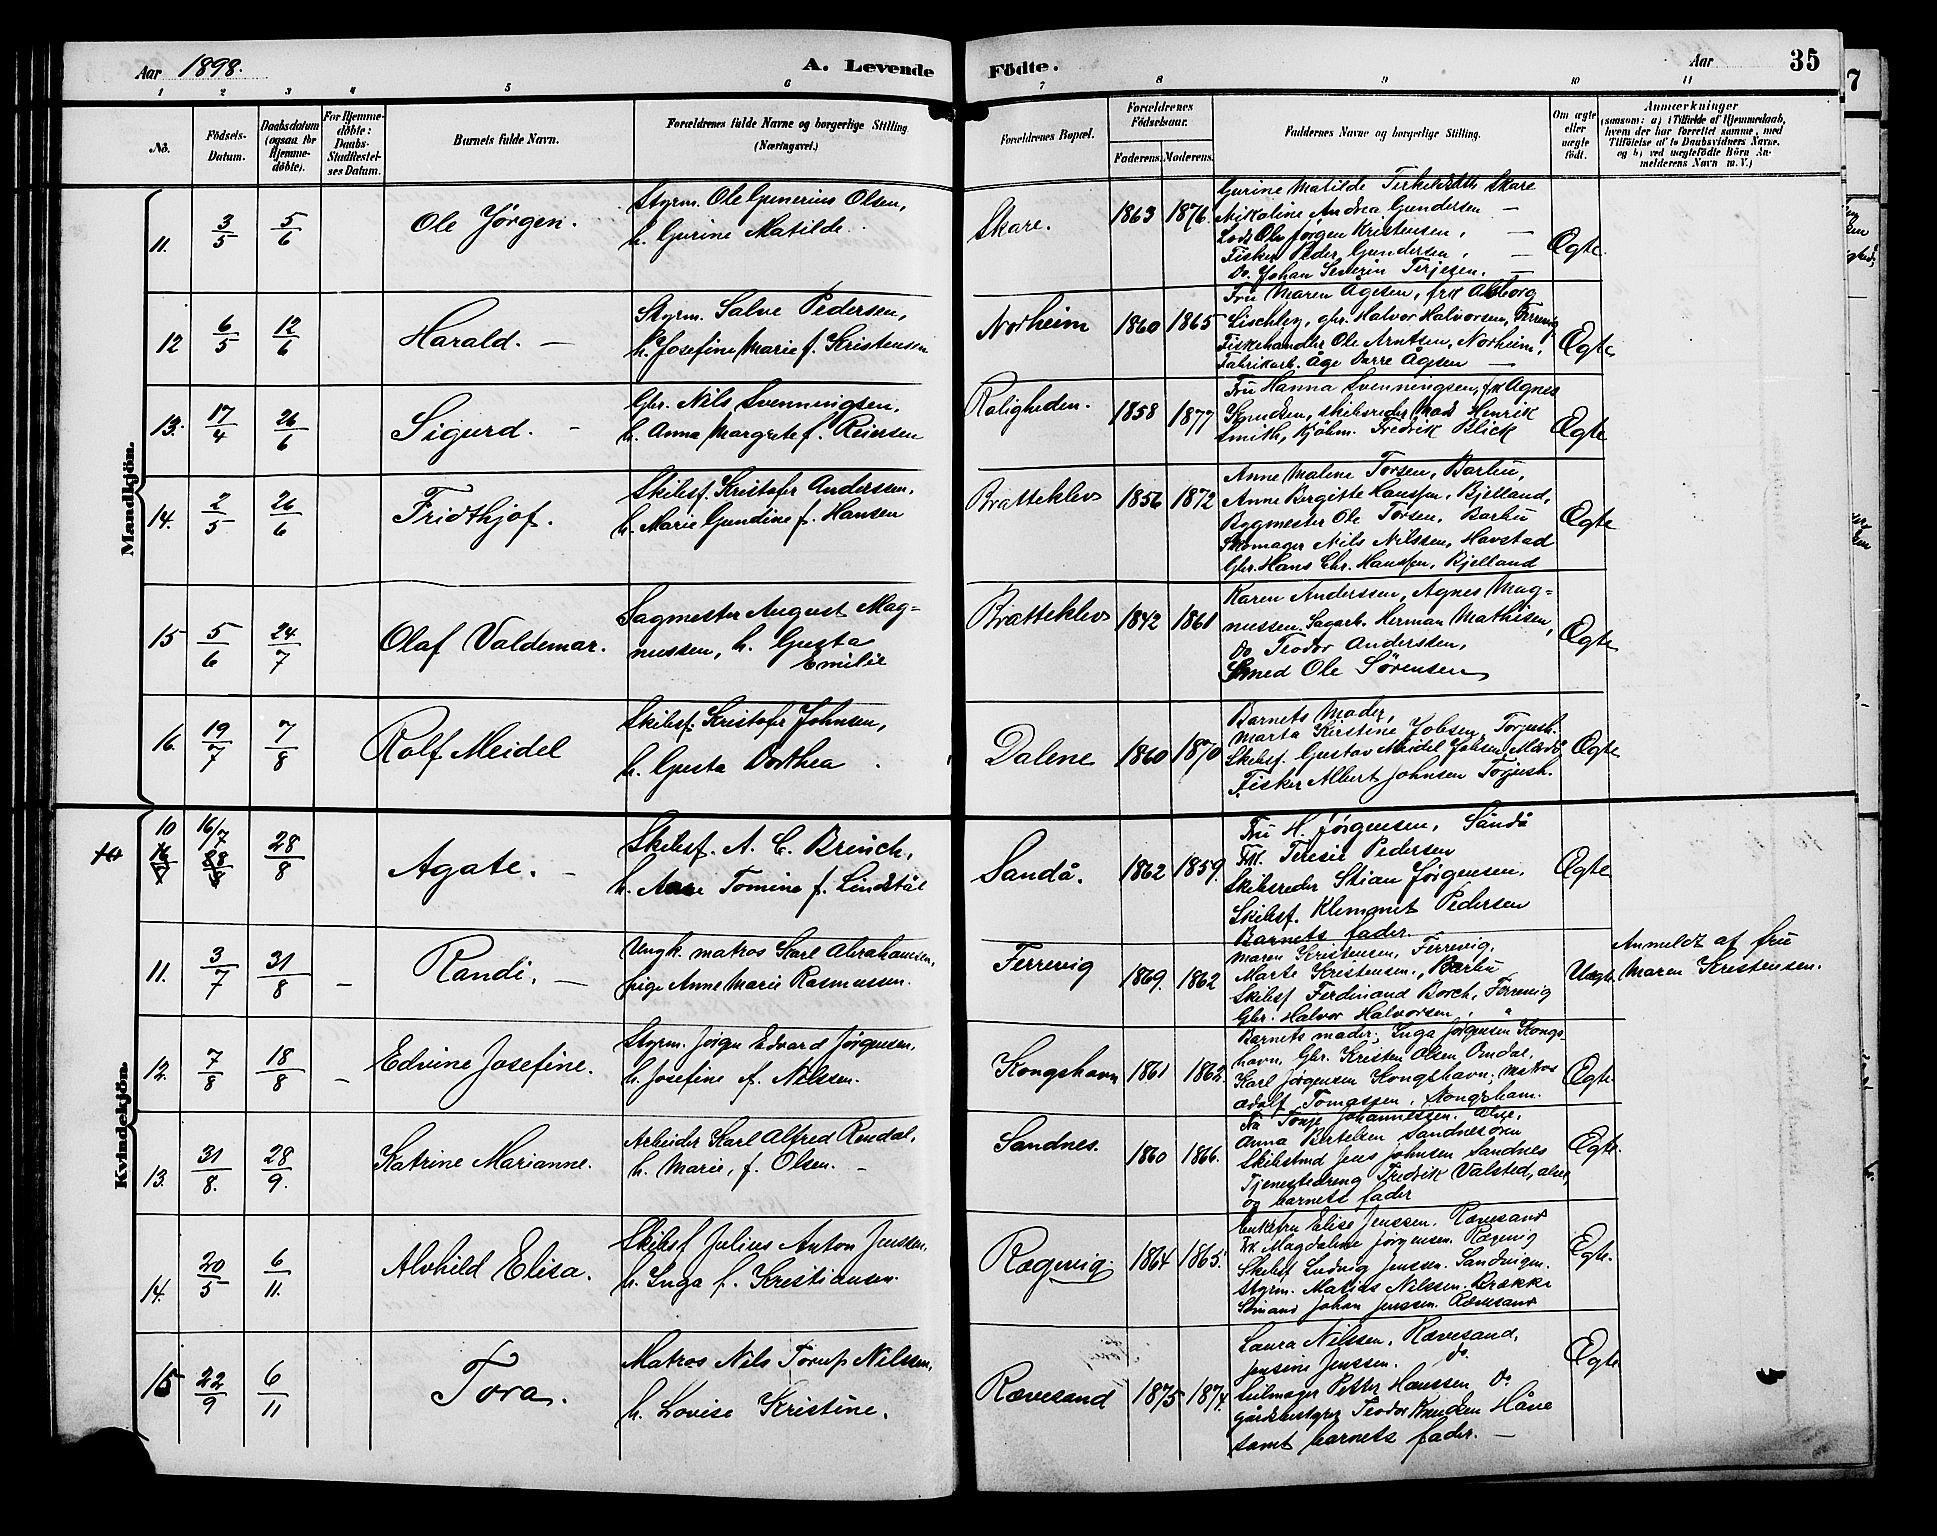 Aar 1898. A. Levende Födte. Aar 35
1 2 3 4 5 6 7 8 9 10 11
No. Födsels-Datum. Daabsdatum (ogsaa for Hjemme-döbte). For Hjemme-döbte: Daabs-Stadfæstel-ses Datum. Barnets fulde Navn. Forældrenes fulde Navne og borgerlige Stilling (Næringsvei.) Forældrenes Bopæl. Forældrenes Födselsaar. Faderens. Moderens. Faddernes Navne og borgerlige Stilling. Om ægte eller uægte födt. Anmærkninger
(saasom: a) i Tilfælde af Hjemmedaab, hvem der har forrettet samme, med Tilföielse af to Daabsvidners Navne, og b) ved uægtefödte Börn An-melderens Navn m. V.)
Mandkjön.
11. 3/5 5/6 Ole Jörgen.
Styrm. Ole Gunerius Olsen,
h. Gurine Matilde
Skare. 1863 1876.
Gurine Matilde Skare
Nikoline Andrea Gundersen —
Lods Ole Jörgen Kristensen, —
Fisker Peder Gundersen, —
Do. Johan Severin Terjesen. —
Ægte.
12 6/5 12/6 Harald. —
Styrm. Salve Pedersen,
h. Josefine Marie f. Kristensen
Norheim 1860 1865
Fru Maren Ågesen, frk
gbr. Halvor Halvorsen, Ferrevig
Fiskehandler Ole Arntsen, Norheim,
Fabrikarb. Åge Ågesen —
Ægte
13. 17/4 26/6 Sigurd. —
Gbr. Nils Svenningsen,
h. Anna Margrete f. Reiersen
Roligheden. 1858 1877
Fru Hanna Svenningsen, frk Agnes
Knudsen, skibsreder Mads Henrik
Smith, Kjöbm. Fredrik Blick
Ægte
14. 2/5 26/6 Fridthjof.
Skibsf. Kristofer Anderssen,
h. Marie Gundine f. Hansen
Bratteklev 1856 1872
Anne Malene Torsen, Barbu,
Anne Bergitte Hanssen, Bjelland,
Bygmester Ole Torsen, Barbu
Skomager Nils Nilssen, Havstad
Gbr. Hans Chr. Hanssen, Bjelland
Ægte
15 5/6 24/7 Olaf Valdemar.
Sagmester August Mag=
nussen, h. Gusta
Emilie
Bratteklev 1842 1861
Karen Anderssen, Agnes Mag=
nussen. Sagarb. Herman Mathisen,
Do Teodor Anderssen,
Smed Ole Sörensen
Ægte
16. 19/7 7/8 Rolf Meidel
Skibsf. Kristofer Johnsen,
h. Gusta Dorthea
Dalene 1860 1870
Barnets Moder,
Marta Kirstine Jobsen, Torjush.
Skibsf. Gustav Meidel Jobsen,
Fisker Albert Johnsen Torjush.
Ægte
Kvindekjön.
10 16/7 28/8 Agate. —
Skibsf. A. C. Breuch,
h. Tomine f. Lindstöl
Sandå. 1862 1859.
Fru H. Jörgensen, Sandå
Frk. Teresie Pedersen
Skibsreder Stian Jörgensen,
Skibsf. Klement Pedersen
Barnets fader.
Ægte
11. 3/7 31/8 — Randi. —
Ungk. matros Karl Abrahamsen,
pige Anne Marie Rasmussen.
Ferrevig 1869. 1862
Maren Kristensen, Ferrevig,
Marte Kristensen, Barbu
Skibsf Ferdinand Borch, Ferrevig
Gbr. Halvor Halvorsen, "
Uægte
Anmeldt af fru
Maren Kristensen.
12. 7/8 18/8 — Edvine Josefine.
Styrm. Jörgen Edvard Jörgensen,
h. Josefine f. Nilssen.
Kongshavn 1861 1862.
Barnets moder; Inga Jörgensen Kongs
havn, Gbr. Kristen Olsen Omdal,
Karl Jörgensen Kongshavn; matros
Adolf Tomassen, Kongshavn.
Ægte
13. 31/8. 28/9. Katrine Marianne.
Arbeider Karl Alfred Rendal,
h. Marie, f. Olsen. —
Sandnes. 1860 1866.
Tonje Johannessen. Alve,
Anna Bertelsen Sandnesören
Jens Johnsen Sandnes
Tjenestedreng Fredrik Valsted, Alve,
og barnets fader
Ægte.
14. 20/5 6/11. Alvhild Elisa.
Skibsf Julius Anton Jenssen,
h. Inga f. Kristiansen.
Rægevig. 1864 1865.
Enkefru Elise Jenssen. Rævesand
Magdalene Jörgensen. Rægevig
Skibsf Ludvig Jenssen. Sandvigen.
Styrm. Matias Nilssen. Brække
Sömand Johan Jenssen. Rævesand
Ægte.
15 22/9 6/11 Tora.
Matros Nils Torup Nilssen,
h. Lovise Kristine.
Rævesand 1875 1874.
Laura Nilssen, Rævesand,
Jensine Jenssen. do.
Seilmager Petter Hanssen Do
gårdbestyrer Teodor Knudsen Håve
samt barnets fader. —
Ægte